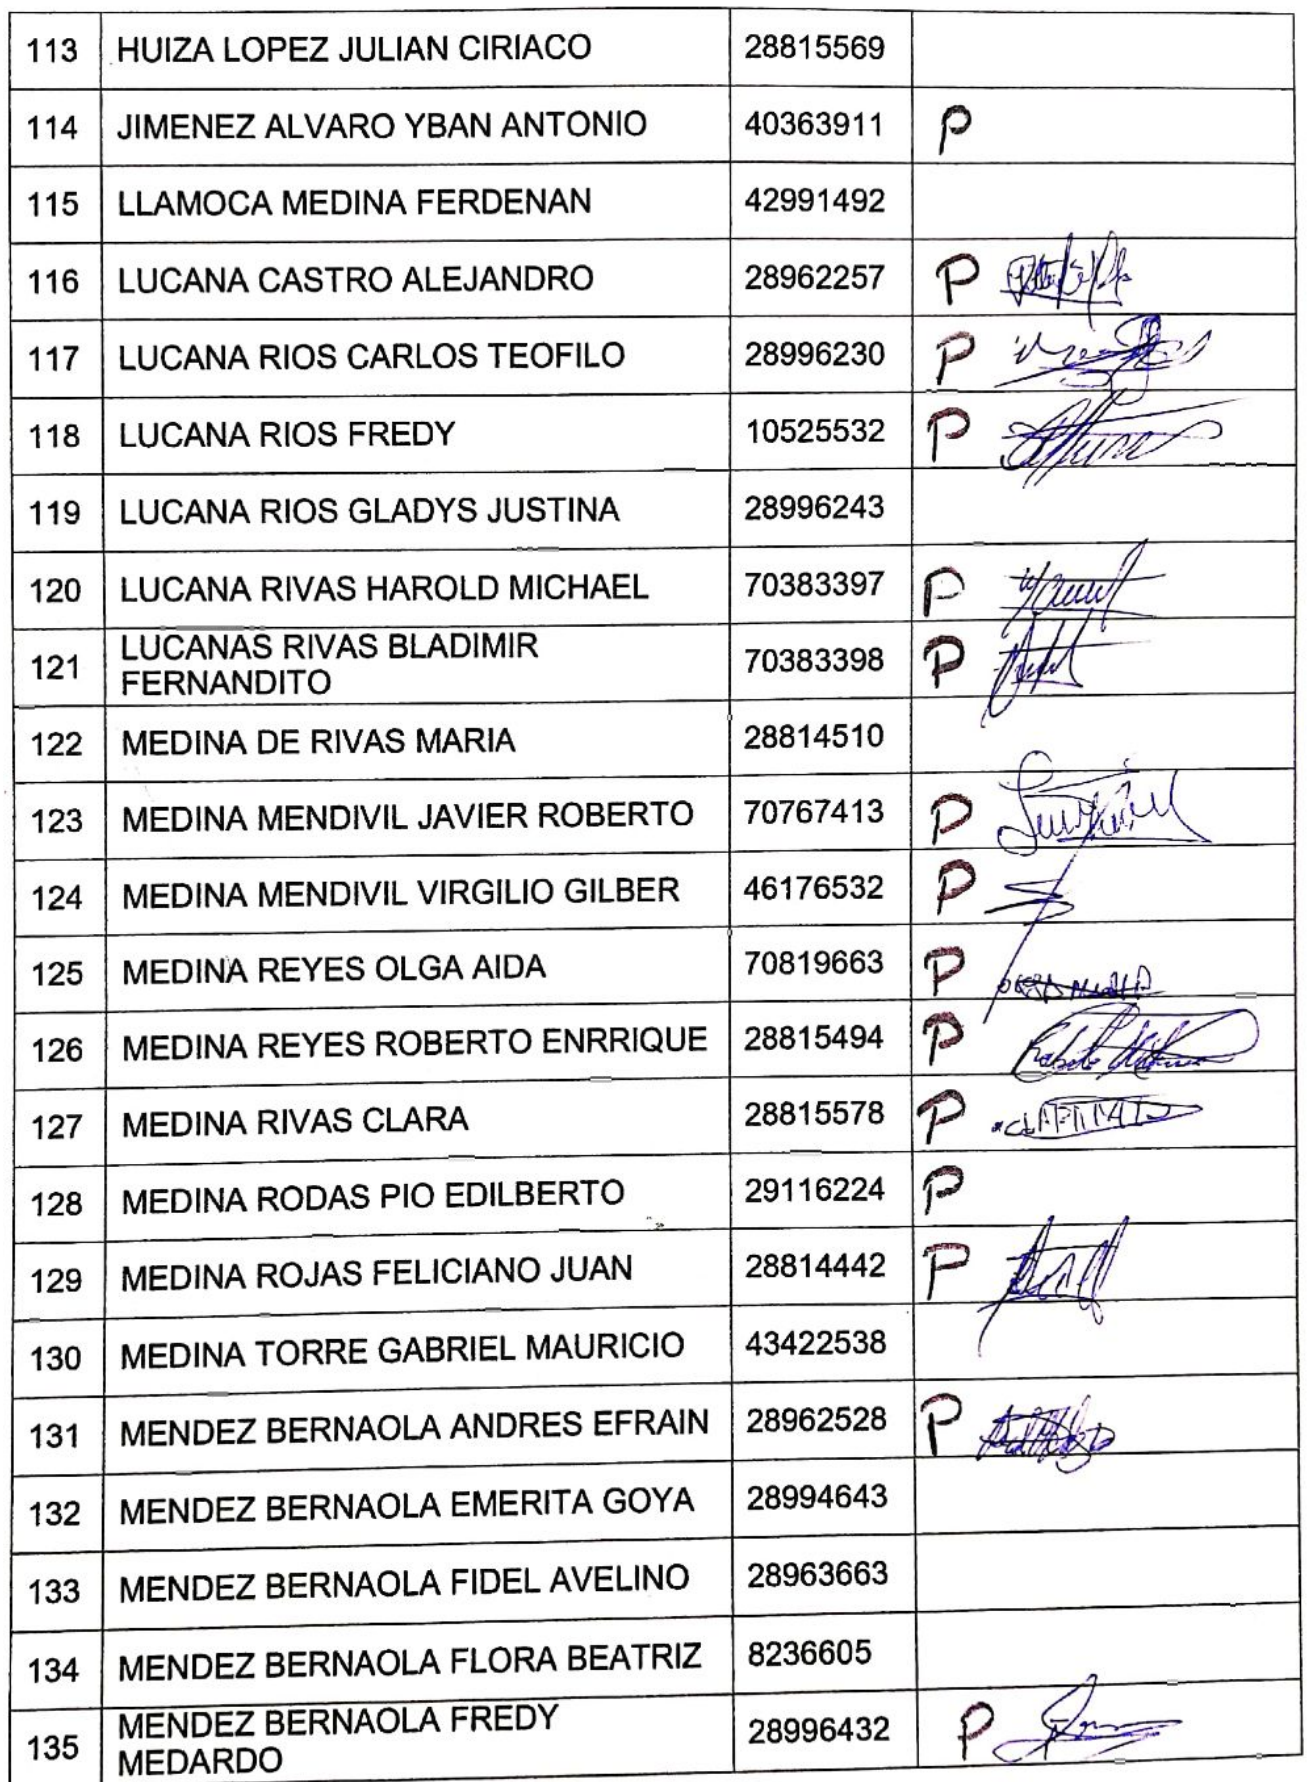 113 HUIZA LOPEZ JULIAN CIRIACO 28815569
114 JIMENEZ ALVARO YBAN ANTONIO 40363911 P
115 LLAMOCA MEDINA FERDENAN 42991492
116 LUCANA CASTRO ALEJANDRO 28962257 P
117 LUCANA RIOS CARLOS TEOFILO 28996230 P
118 LUCANA RIOS FREDY 10525532 P
119 LUCANA RIOS GLADYS JUSTINA 28996243
120 LUCANA RIVAS HAROLD MICHAEL 70383397 P
121 LUCANAS RIVAS BLADIMIR
FERNANDITO 70383398 P
122 MEDINA DE RIVAS MARIA 28814510
123 MEDINA MENDIVIL JAVIER ROBERTO 70767413 P
124 MEDINA MENDIVIL VIRGILIO GILBER 46176532 P
125 MEDINA REYES OLGA AIDA 70819663 P
126 MEDINA REYES ROBERTO ENRRIQUE 28815494 P
127 MEDINA RIVAS CLARA 28815578 P
128 MEDINA RODAS PIO EDILBERTO 29116224 P
129 MEDINA ROJAS FELICIANO JUAN 28814442 P
130 MEDINA TORRE GABRIEL MAURICIO 43422538
131 MENDEZ BERNAOLA ANDRES EFRAIN 28962528 P
132 MENDEZ BERNAOLA EMERITA GOYA 28994643
133 MENDEZ BERNAOLA FIDEL AVELINO 28963663
134 MENDEZ BERNAOLA FLORA BEATRIZ 8236605
135 MENDEZ BERNAOLA FREDY
MEDARDO 28996432 P